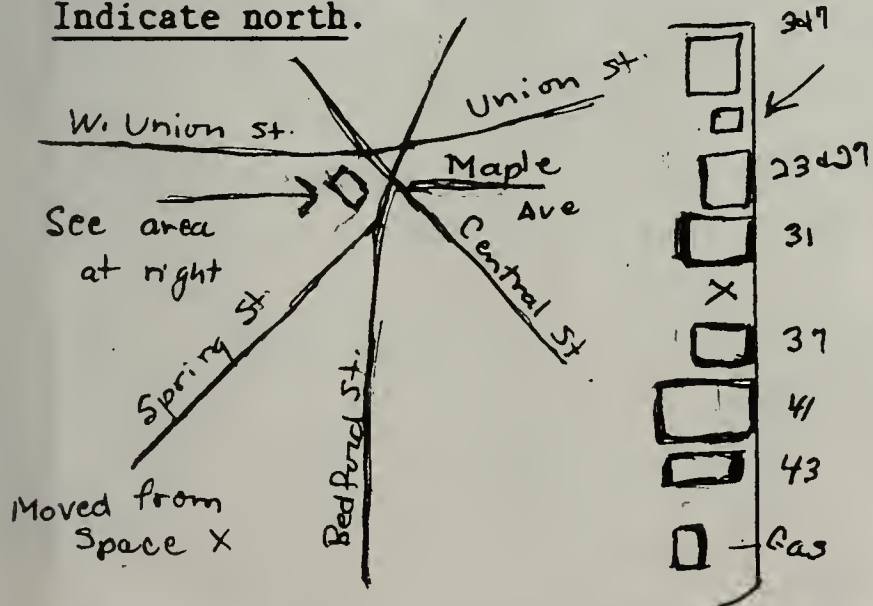 Indicate north.
W. Union St.
Union St.
Maple
Ave
See area
at right
Central St
Spring St.
Bedford St.
Moved from
Space X
3&7
23&27
31
X
37
41
43
Gas